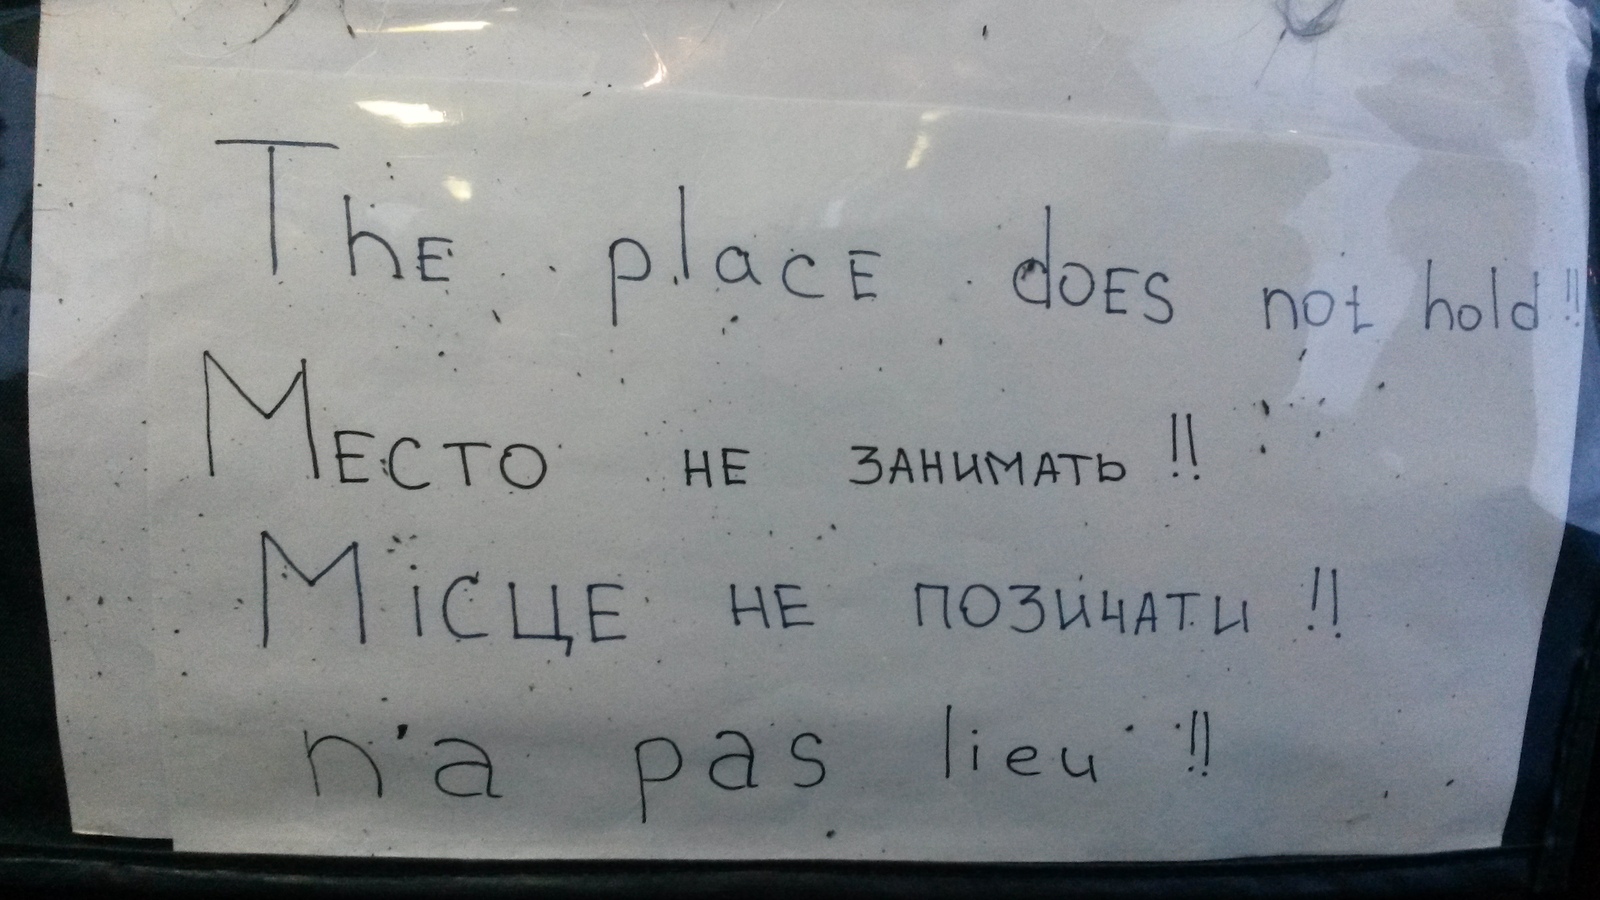 The place does not hold!!
Место не занимать!!
Місце не позичати!!
n'a pas lieu!!